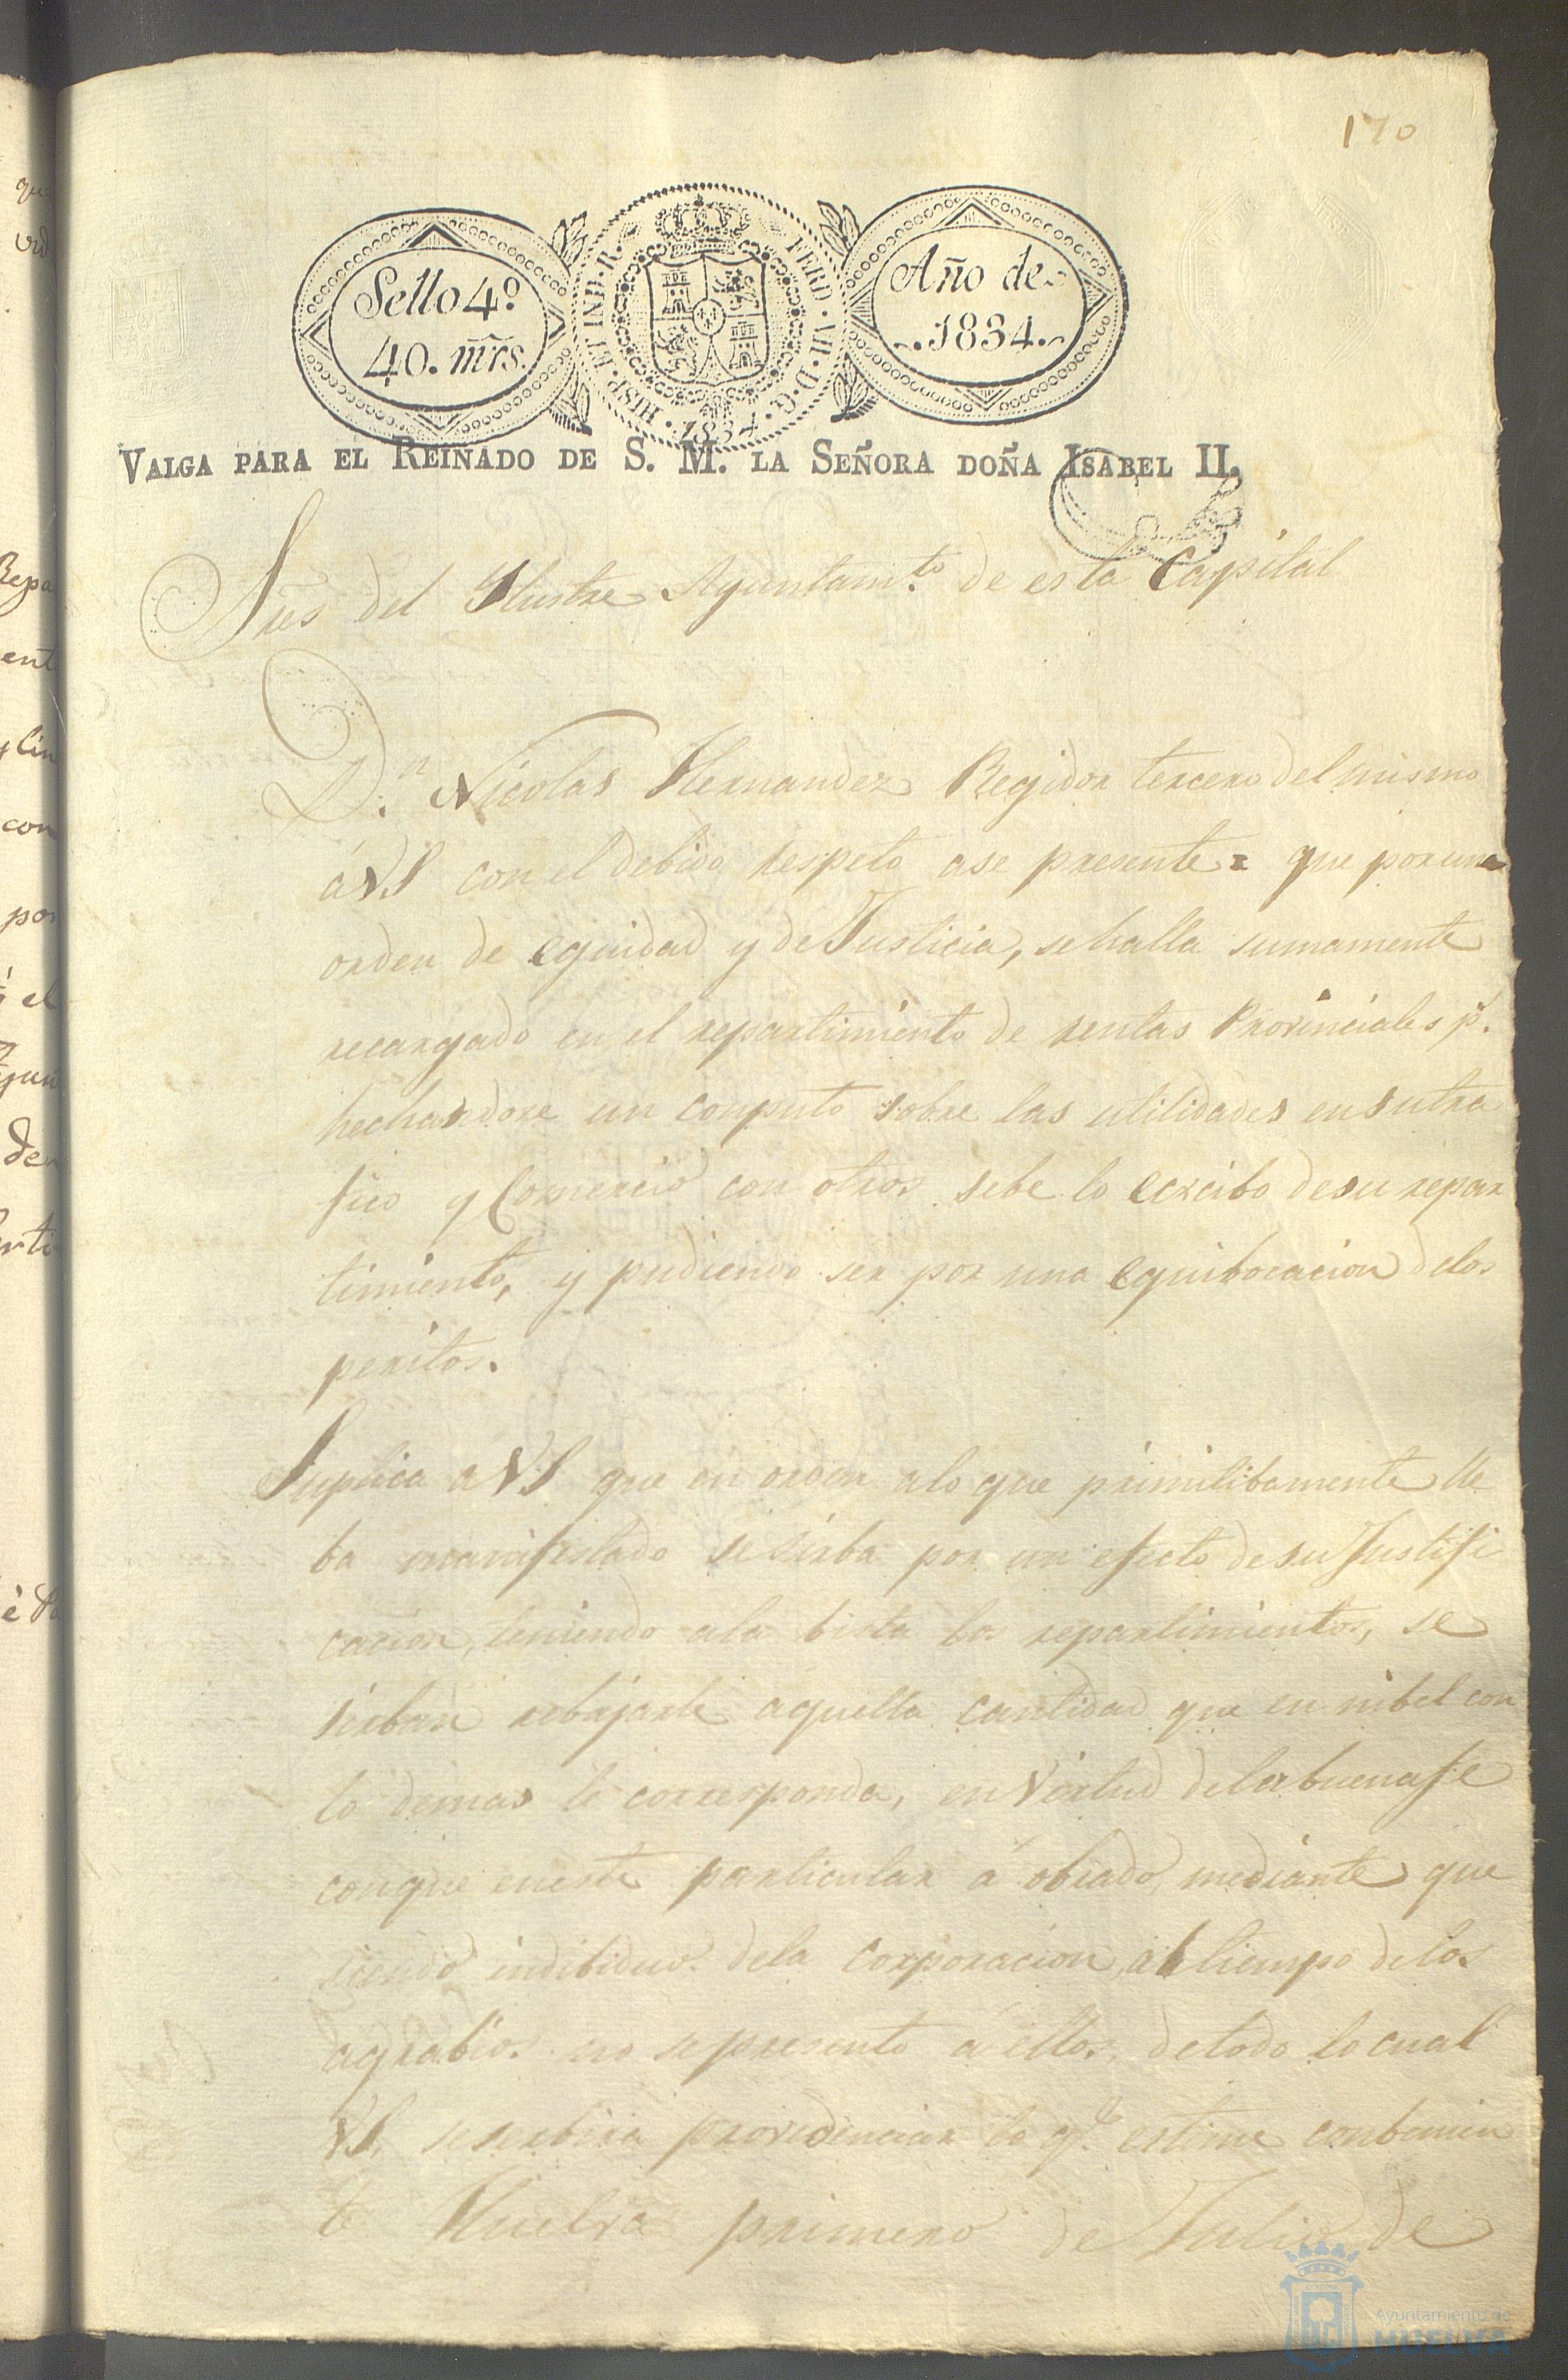 170
Sello 4º
40. mrs.
HISP. ET IND. R.
FERD. VII. D. G.
1834
Año de
1834.
VALGA PARA EL REINADO DE S. M. LA SEÑORA DOÑA ISABEL II.
Sres del Ilustre Ayuntamto. de esta Capital
Dn. Nicolas Hernandez Regidor tercero del mismo
á VS con el debido respeto ase presente = que por una
orden de equidad y de Justicia, se halla sumamente
recargado en el repartimiento de rentas Provinciales p.
hechandose un computo sobre las utilidades en su tra
fico y Comercio con otros sebe lo de su repar
timiento, y pudiendo ser por una equibocacion delos
peritos.
Suplica a VS que en orden alo que primitibamente lle
ba manifestado se sirba por un efecto de su Justifi
cacion, teniendo ala bista los repartimientos, se
sirban rebajarle aquella cantidad que en nibel con
lo demas le corresponda, en Virtud dela buena fe
conque eneste particular á obrado, mediante que
siendo indibiduo dela Corporacion, al tiempo delos
agrabios no se presento á ellos, de todo lo cual
VS. se serbira providenciar lo qe. estime conbenien
te Huelva primero de Julio de
Ayuntamiento de
HUELVA